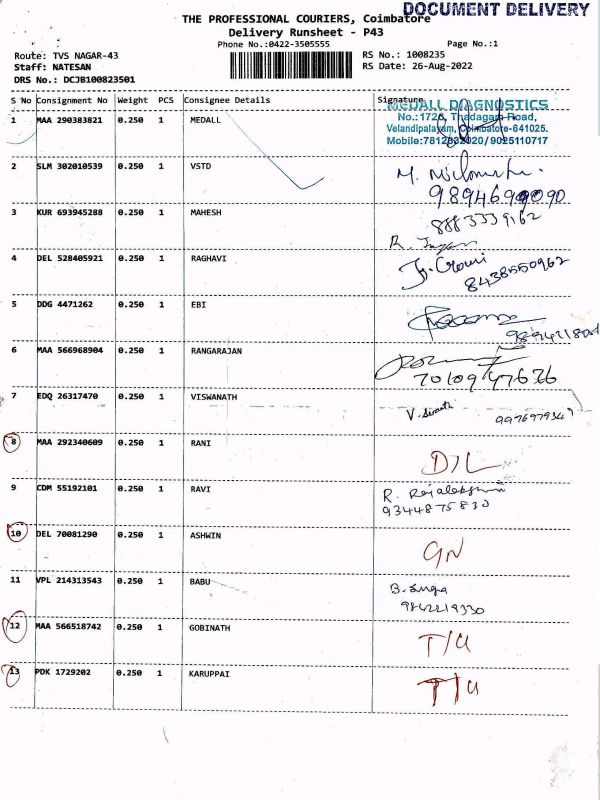 DOCUMENT DELIVERY
THE PROFESSIONAL COURIERS, Coimbatore
Delivery Runsheet - P43
Phone No.:0422-3505555
Page No.:1
Route: TVS NAGAR-43
RS No.: 1008235
Staff: NATESAN
RS Date: 26-Aug-2022
DRS No.: DCJB100823501
S No Consignment No Weight PCS Consignee Details Signature
MEDALL DIAGNOSTICS
No.:1726, Thadagam Road,
Velandipalayam, Coimbatore-641025.
Mobile:7812832020/9025110717
1 MAA 290383821 0.250 1 MEDALL
2 SLM 302010539 0.250 1 VSTD
3 KUR 693945288 0.250 1 MAHESH 8883339162
4 DEL 528405921 0.250 1 RAGHAVI 8438550962
5 DDG 4471262 0.250 1 EBI
6 MAA 566968904 0.250 1 RANGARAJAN
7 EDQ 26317470 0.250 1 VISWANATH
8 MAA 292340609 0.250 1 RANI D/L
9 CDM 55192101 0.250 1 RAVI
9344875830
10 DEL 70081290 0.250 1 ASHWIN GN
11 VPL 214313543 0.250 1 BABU
9842219330
12 MAA 566518742 0.250 1 GOBINATH T/U
13 PDK 1729202 0.250 1 KARUPPAI T/U